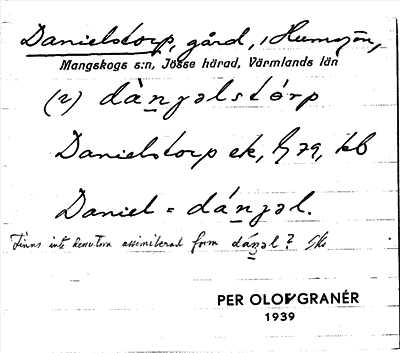 Danielstorp, gård, i Humsjön,
Mangskogs s:n, Jösse härad, Värmlands län
(2) dàn̲jəlstórp
Danielstorp ek, G 79, kb
Daniel = dán̲jəl.
Finns inte dessutom assimilerad form dán̲əl?
PER OLOF GRANÉR
1939